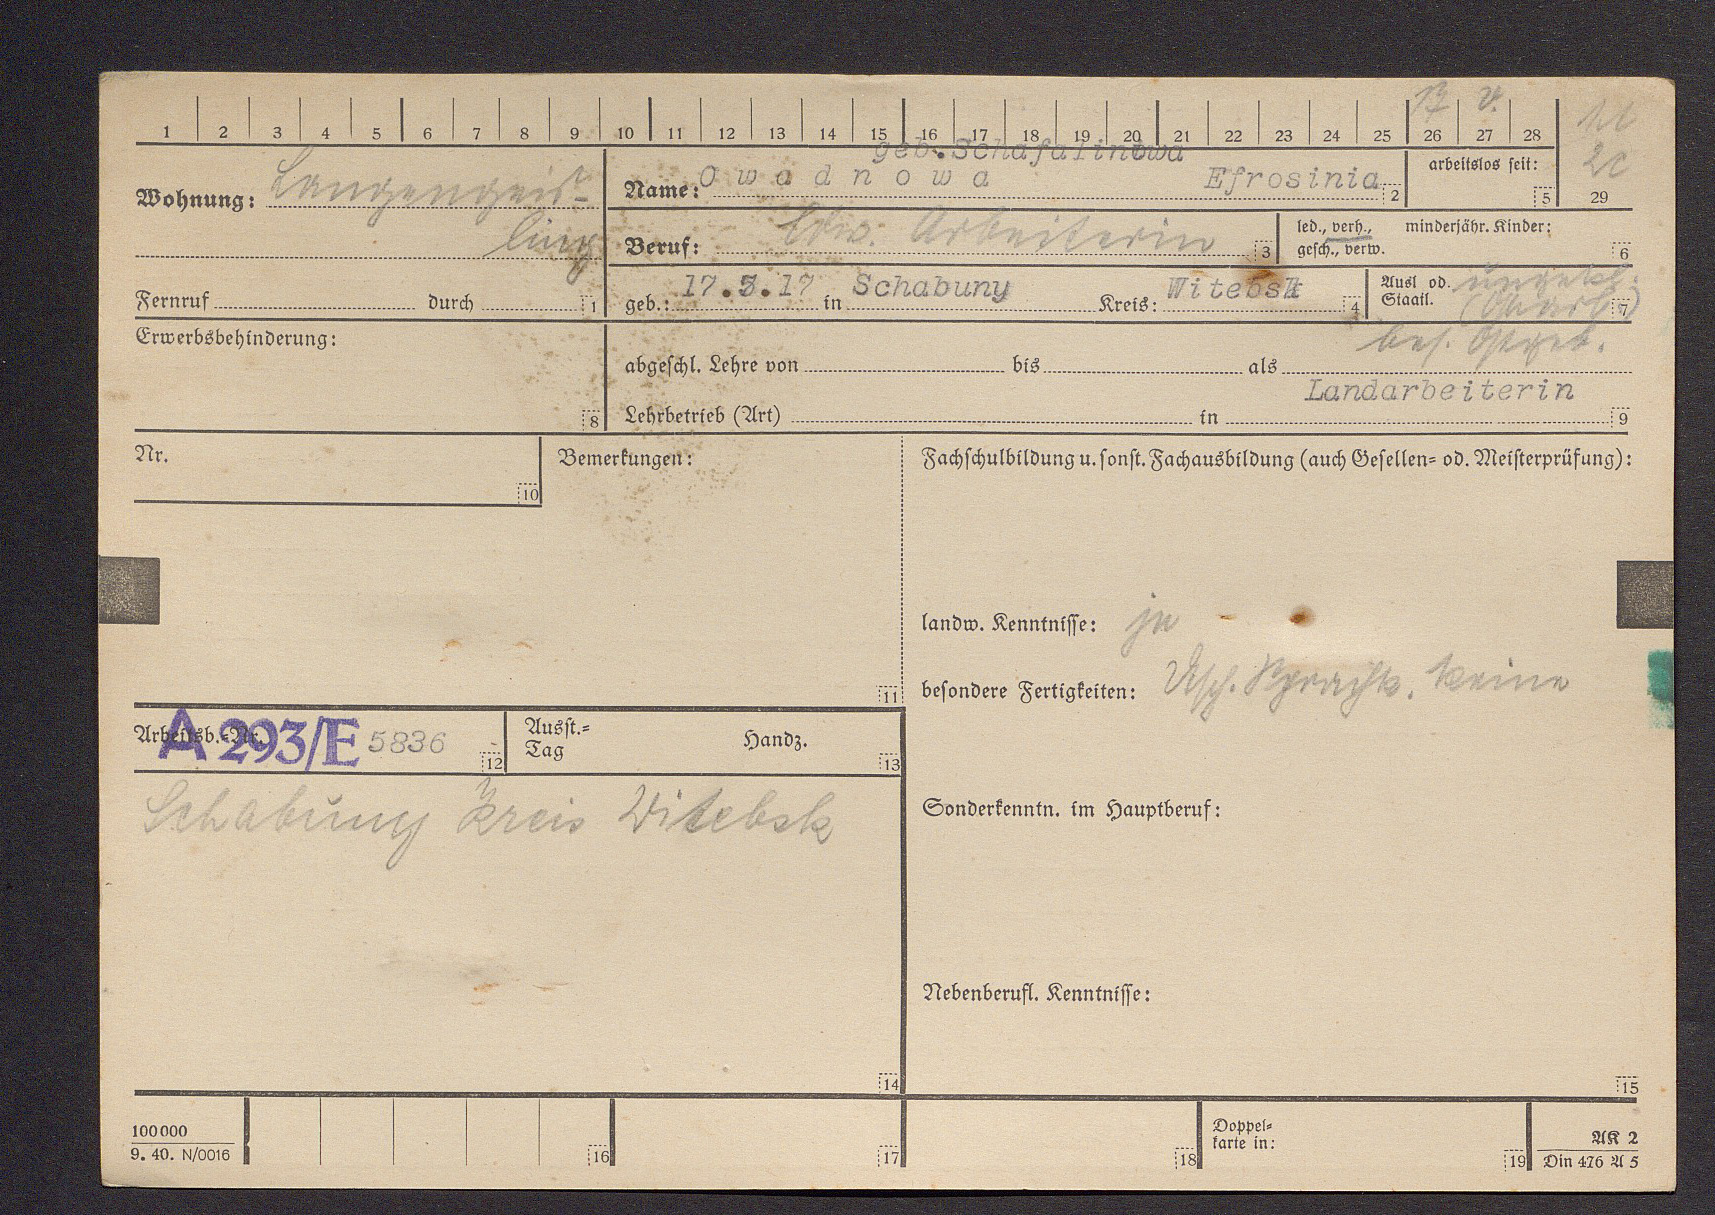 1 2 3 4 5 6 7 8 9 10 11 12 13 14 15 16 17 18 19 20 21 22 23 24 25 26 27 28
29
Wohnung: Langengeis-
ling
geb. Schafalinowa
Name: Owadnowa Efrosinia 2
arbeitslos seit: 5
Beruf: Ldw. Arbeiterin 3
led., verh., minderjähr. Kinder:
gesch., verw. 6
Fernruf durch 1
geb.: 17.3.17 in Schabuny Kreis: Witebsk 4
Ausl od.
Staatl. 7
bes. Ostgeb.
Erwerbsbehinderung: 8
abgeschl. Lehre von bis als
Landarbeiterin
Lehrbetrieb (Art) in 9
Nr. 10
Bemerkungen: 11
Fachschulbildung u. sonst. Fachausbildung (auch Gesellen- od. Meisterprüfung):
landw. Kenntnisse: ja
besondere Fertigkeiten: Dtsch. Sprachk. keine
Arbeitsb.-Nr. A 293/E 5836 12
Ausst.-
Tag Handz. 13
Schabuny Kreis Witebsk
14
Sonderkenntn. im Hauptberuf:
Nebenberufl. Kenntnisse:
15
100000
9. 40. N/0016
16 17 18
Doppel-
karte in: 19
AK 2
Din 476 A 5